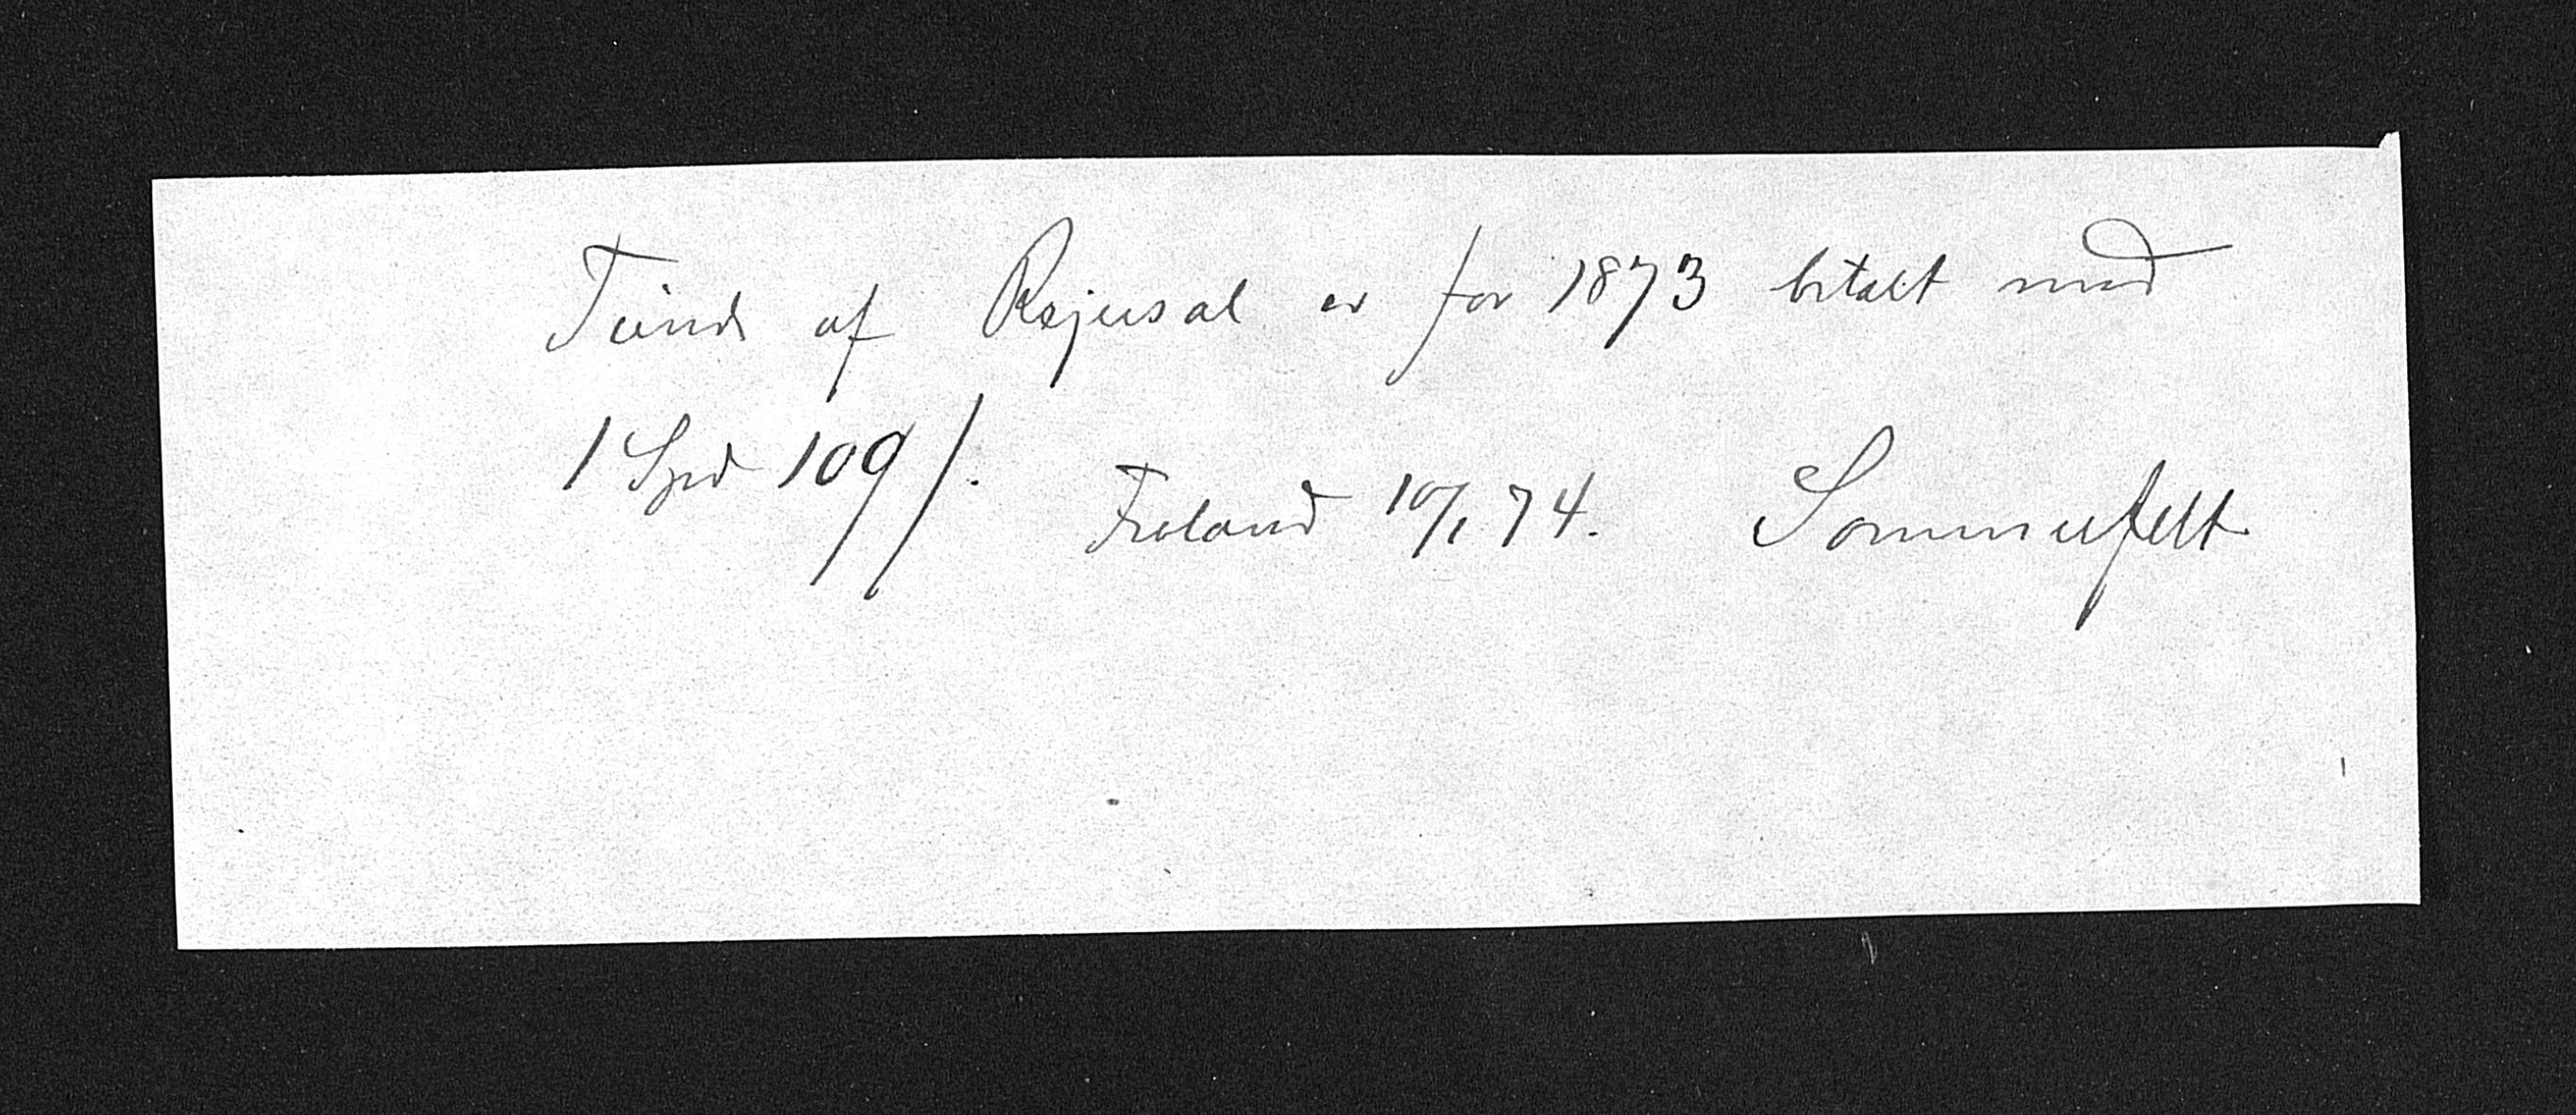 Tiende af Rejusdal er for 1873 betalt med
1 Spd 109 /.
Froland 10/1 74. Sommerfelt